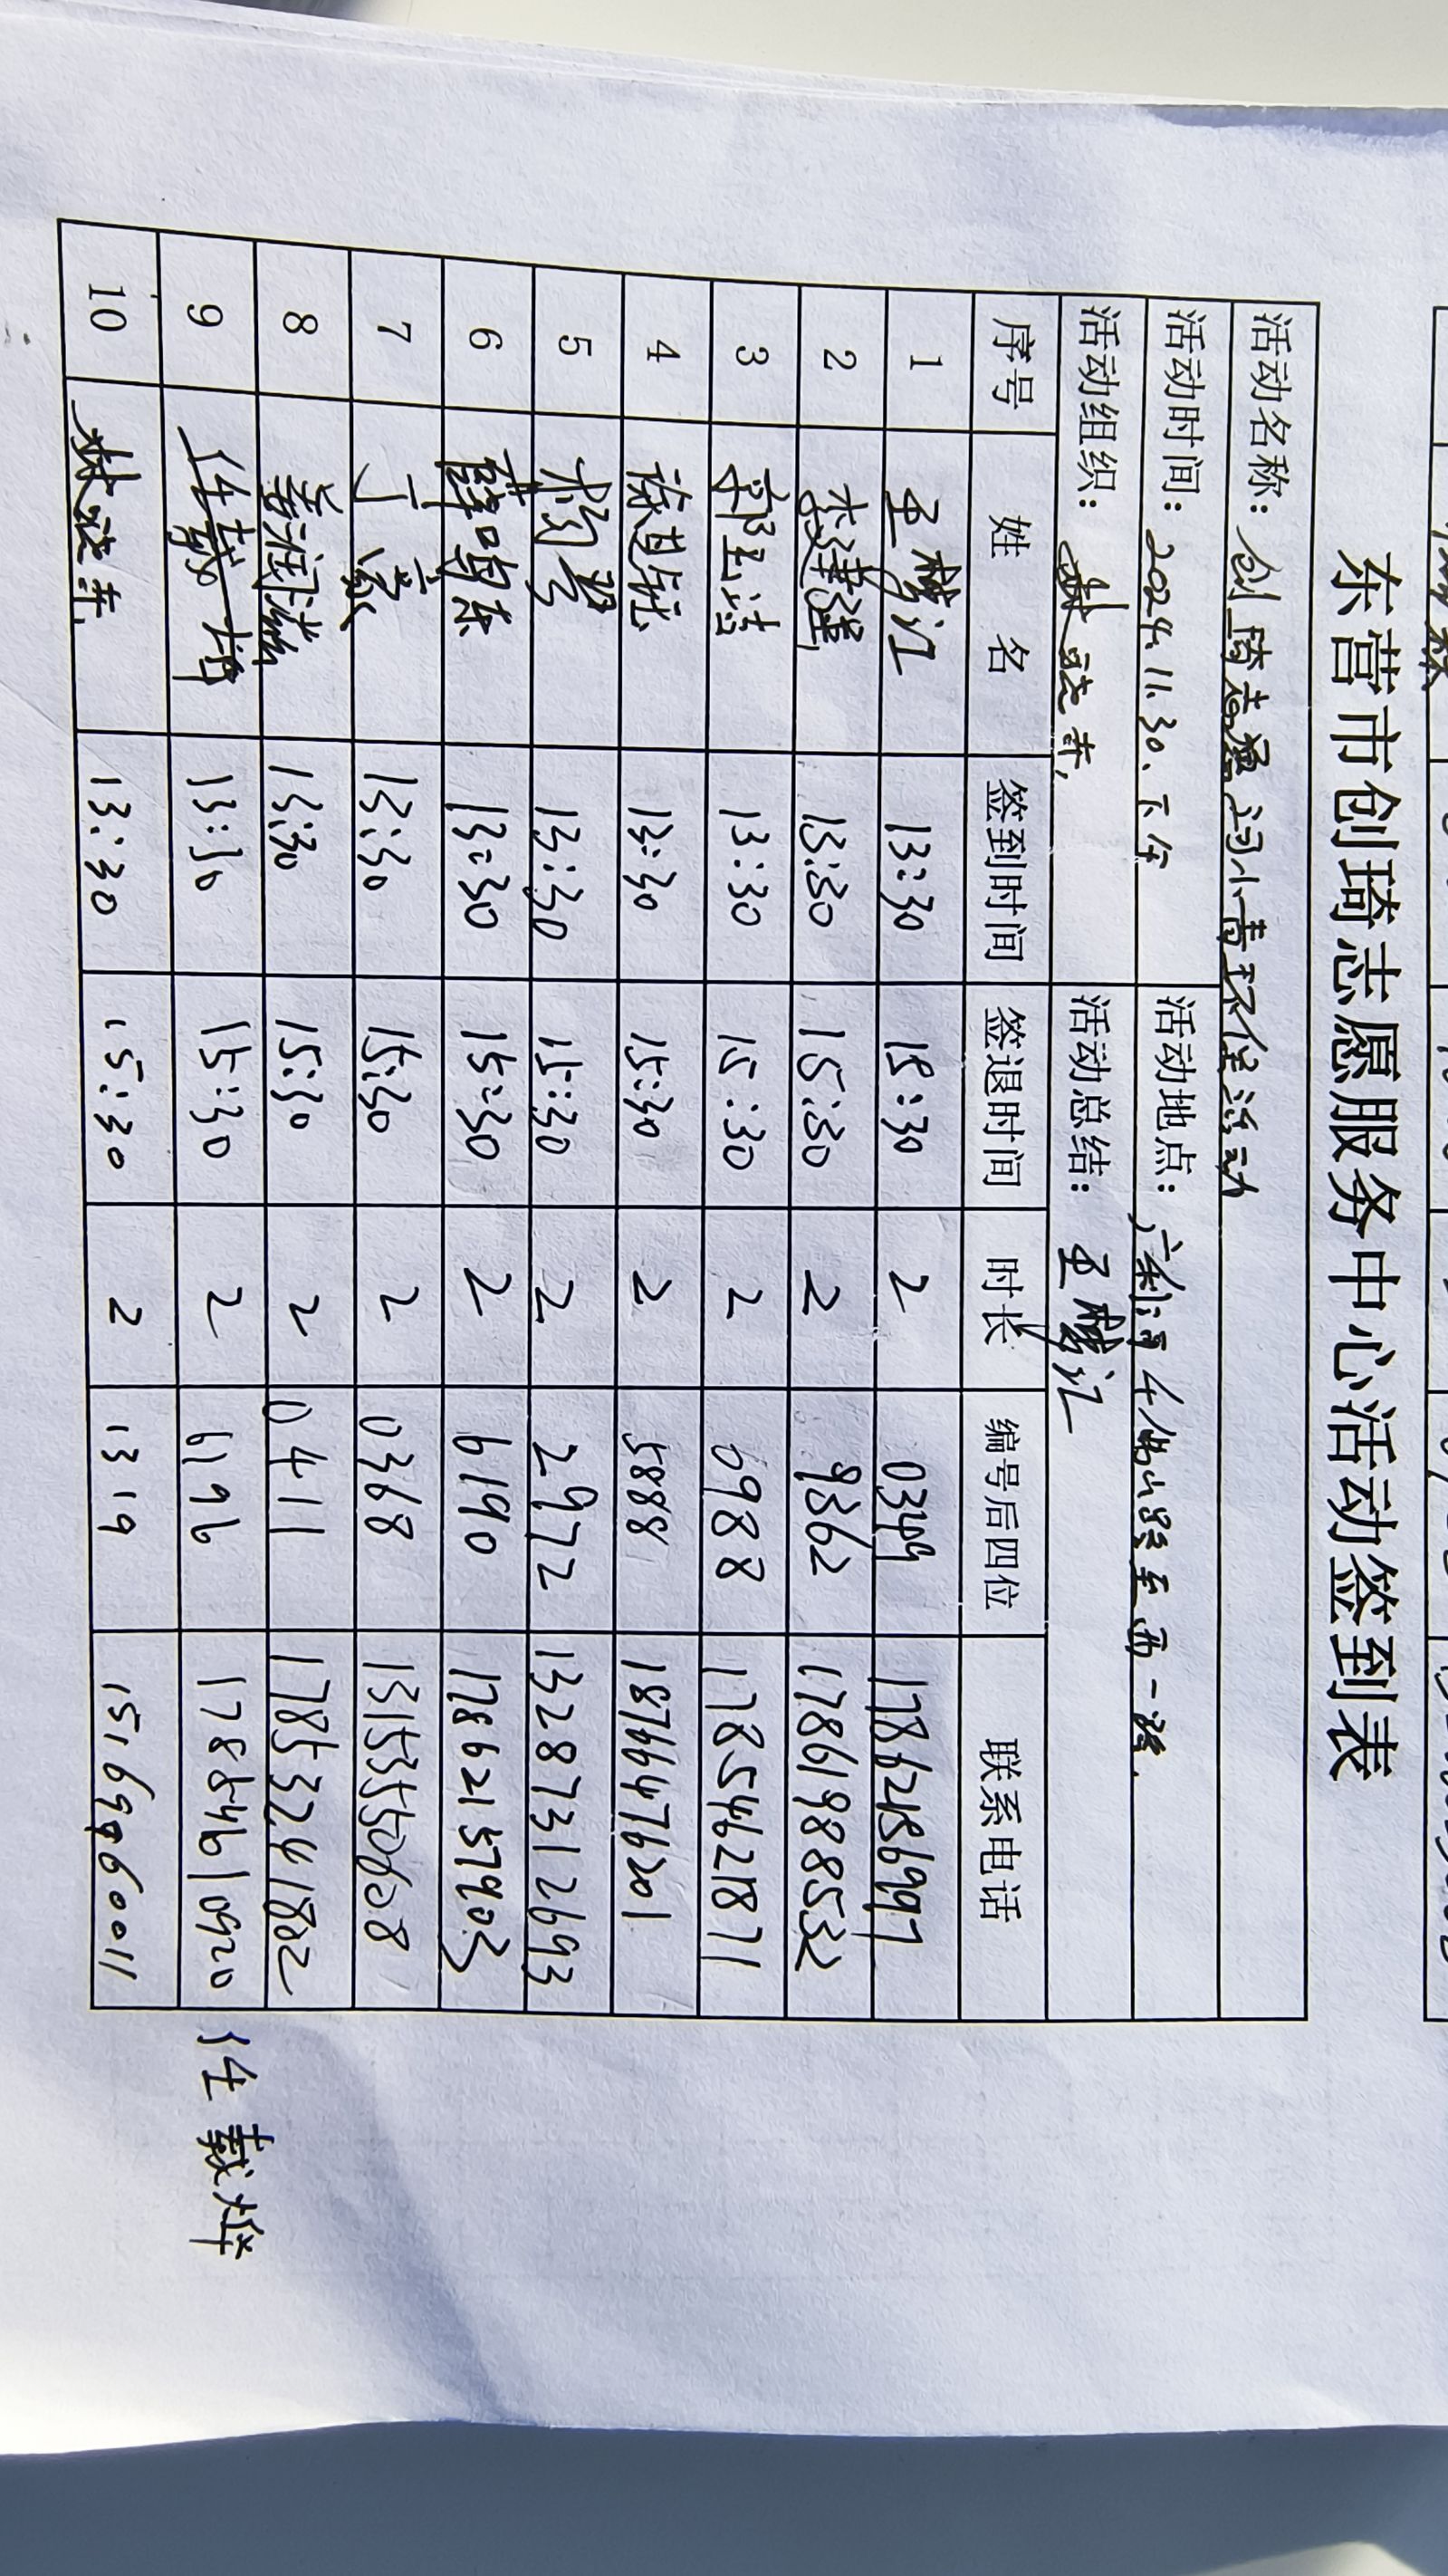 东营市创琦志愿服务中心活动签到表
活动名称：创琦志愿河小青环保活动
活动时间：2024.11.30.下午 活动地点：广利河 至西一路.
活动组织： 活动总结：王 江
序号 姓名 签到时间 签退时间 时长 编号后四位 联系电话
1 王 江 13:30 15:30 2 0349 17862156997
2 李建 13:30 15:30 2 9362 17861988532
3 郭玉洁 13:30 15:30 2 6988 17854621871
4 徐 钰 13:30 15:30 2 5888 18766476201
5 13:30 15:30 2 2972 13287312693
6 薛 东 13:30 15:30 2 6190 17862157903
7 丁 13:30 15:30 2 0368 13153550628
8 姜润 13:30 15:30 2 0411 17853241802
9 任载烨 13:30 15:30 2 6196 17854610920 任载烨
10 13:30 15:30 2 1319 15169960011